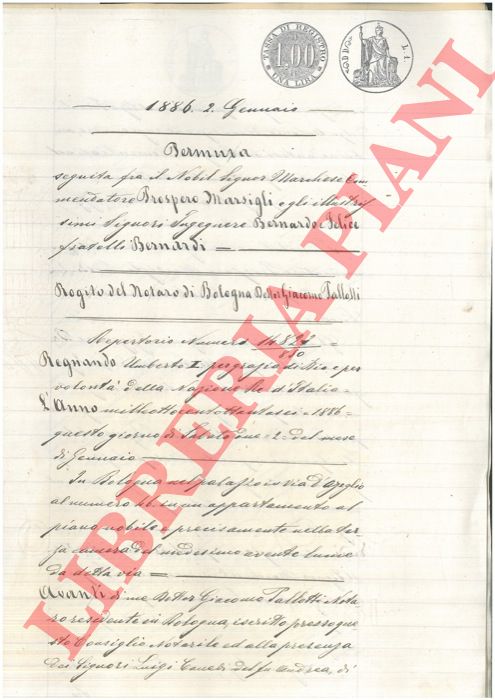 TASSA DI REGISTRO
1.00
UNA LIRA
L. 1.
1886. 2. Gennaio
Permuta
seguita fra il Nobil Signor Marchese Com
mendatore Prospero Marsigli e gli illustris
simi Signori Ingegnere Bernardo e Felice
fratelli Bernardi
Rogito del Notaro di Bologna Dottor Giacomo Pallotti
Repertorio Numero
Regnando Umberto I per grazia di Dio e per
volontà della Nazione Re d'Italia
L'Anno milleottocentottantasei = 1886 =
questo giorno di Sabato due = 2 = del mese
di Gennaio
In Bologna nel palazzo in via d'Azeglio
al numero in un appartamento al
piano nobile e precisamente nella ter
za camera del medesimo avente lume
da detta via
Avanti di me Dottor Giacomo Pallotti Nota
ro residente in Bologna, iscritto presso que
sto Consiglio Notarile ed alla presenza
dei Signori Luigi del fu Andrea, di
LIBRERIA PIANI